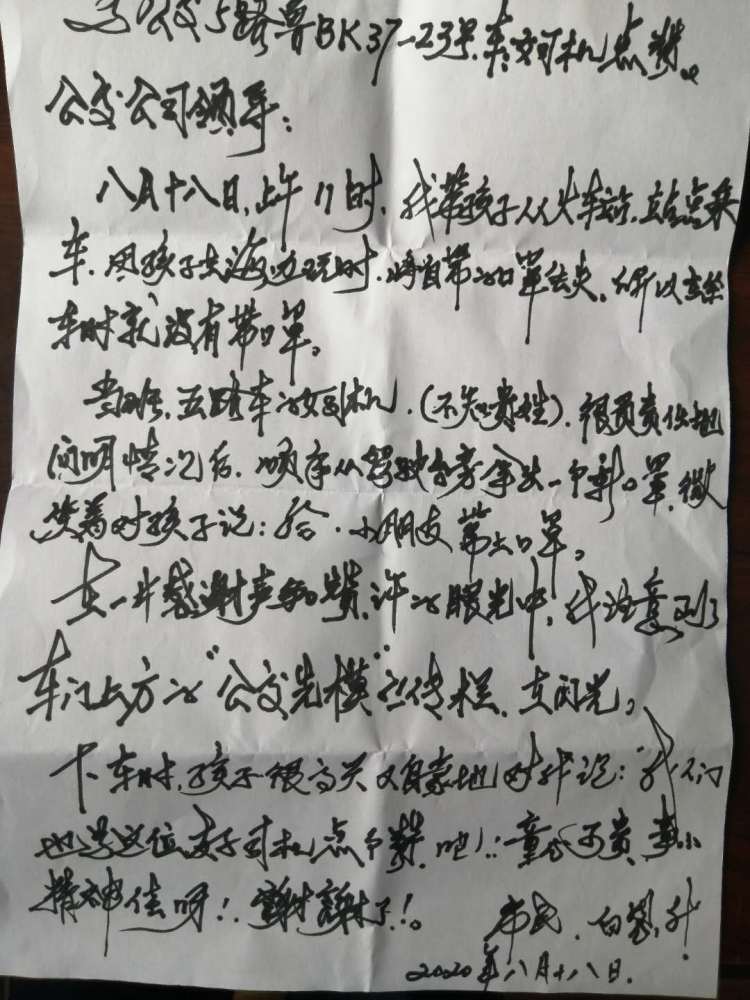 为公交5路鲁BK37-23号车女司机点赞。
公交公司领导:
八月十八日,上午11时,我带孩子从火车站,站点乘
车,因孩子去海边玩时,将自带的口罩丢失,所以
车时就没有带口罩。
当班,五路车的女司机,(不知贵姓),很负责任地
问明情况后,顺手从驾驶台旁拿出一个新口罩,微
笑着对孩子说:给,小朋友带上口罩。
在一片感谢声和赞许的眼光中,我注意到了
车门上方的“公交先模”宣传栏,在闪光。
下车时,孩子很高兴又自豪地对我说:“我们
也为这位女子司机点个赞,吧!:童心可贵,事小
精神佳呀!谢谢了!。
市民,白
2020年八月十八日.